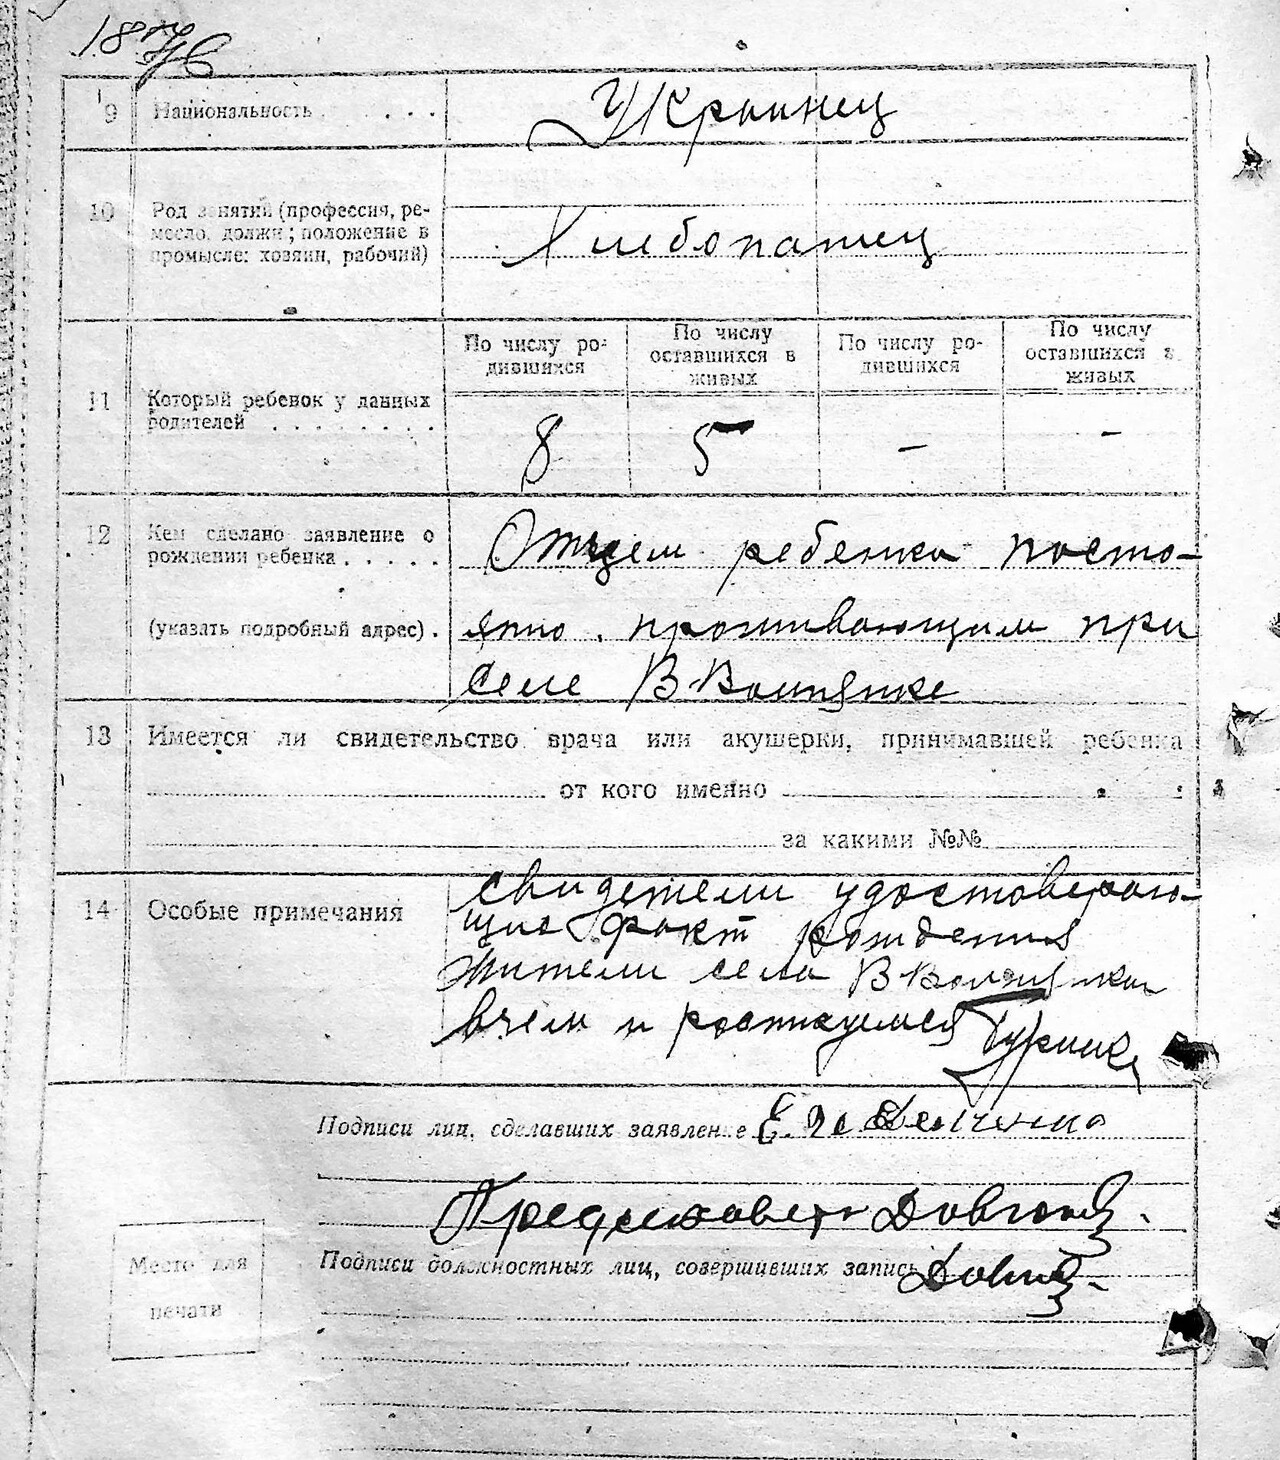 9 Национальность . . . . Украинец
10 Род занятий (профессия, ре-
месло, должн; положение в
промысле: хозяин, рабочий) Хлебопашец
По числу ро-
дившихся
По числу
оставшихся в
живых
По числу ро-
дившихся
По числу
оставшихся в
живых
11 Который ребенок у данных
родителей . . . . . . . .
8 5 - -
12 Кем сделано заявление о
рождении ребенка . . . . .
Отцем ребенка посто-
(указать подробный адрес) .
яно проживающим при
селе В
13 Имеется ли свидетельство врача или акушерки, принимавшей ребенка
от кого именно
за какими №№
14 Особые примечания
свидетели удостоверяю-
щие факт рождения
Жители села В
вчем и росписуемся
Подписи лиц, сделавших заявление Е.
Подписи должностных лиц, совершивших запись
Место для
печати